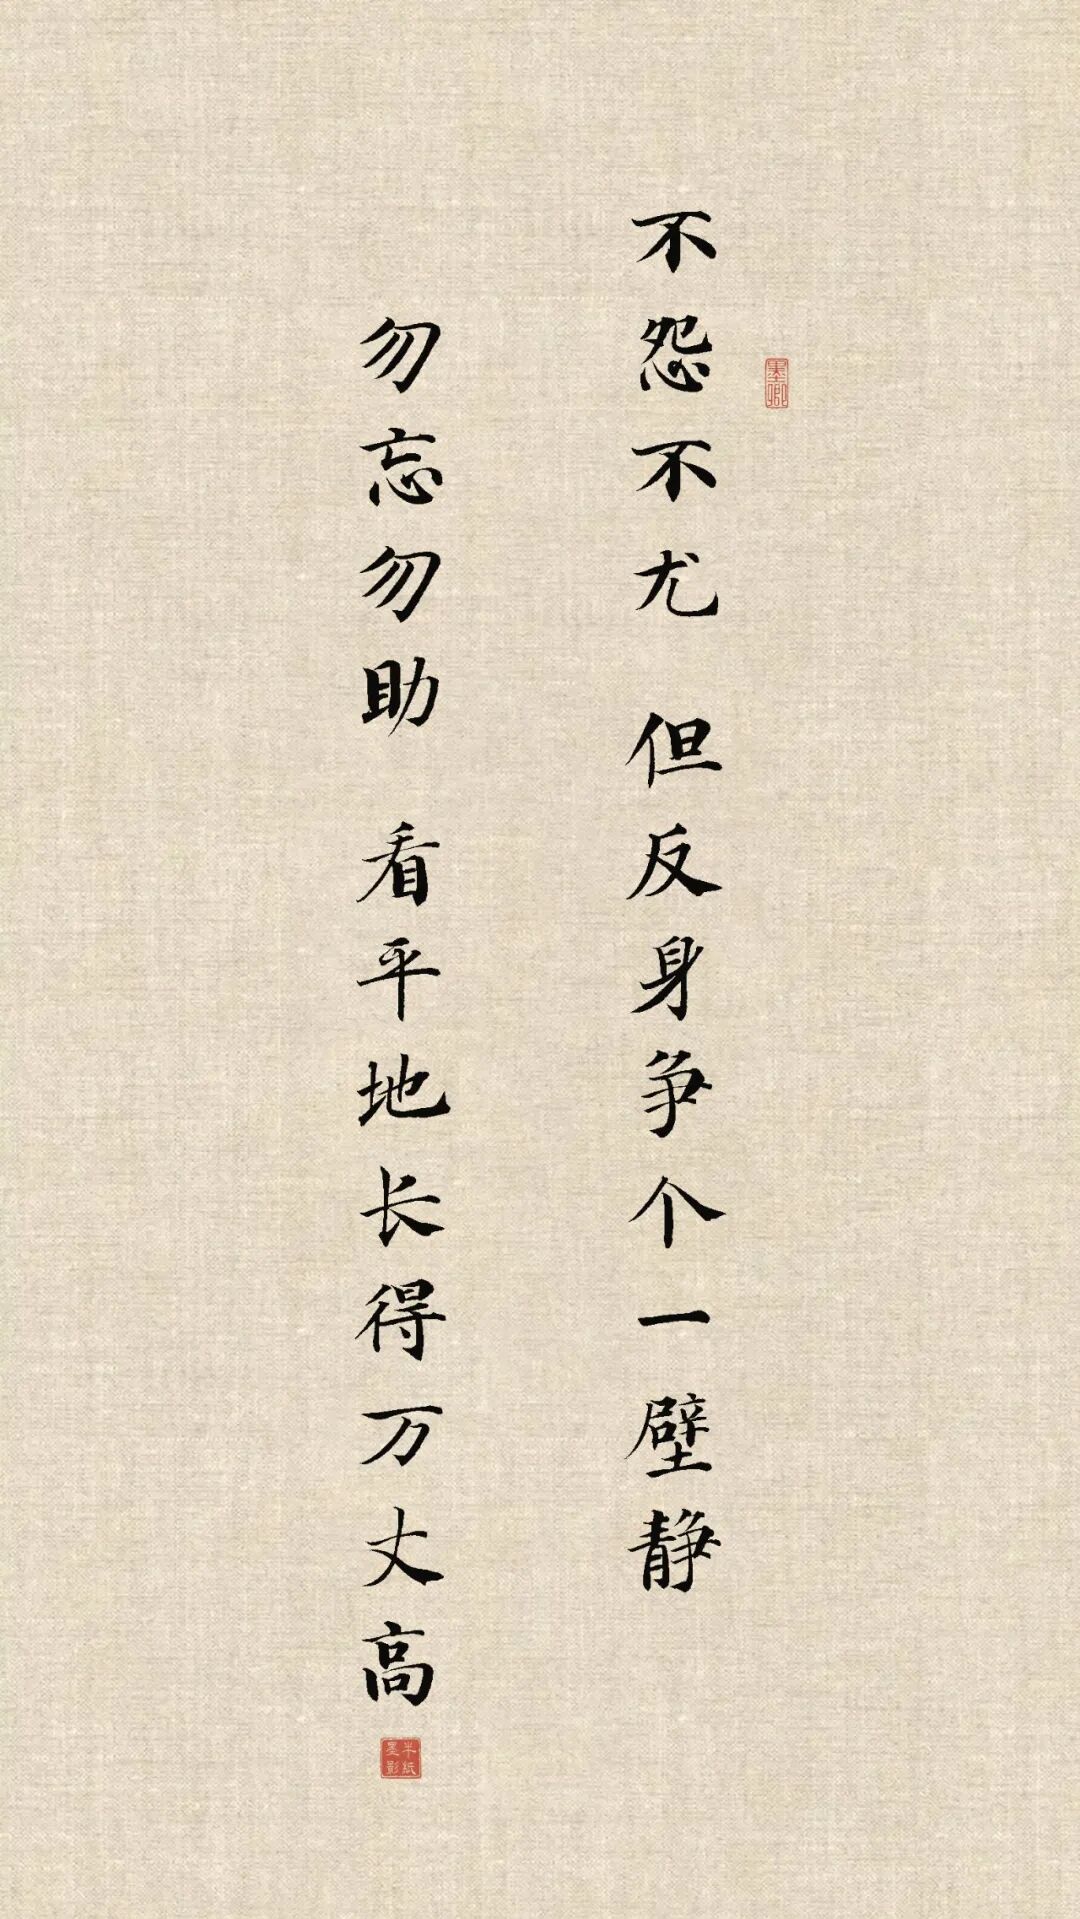 不怨不尤 但反身争个一壁静
勿忘勿助 看平地长得万丈高
墨卿
半纸墨影